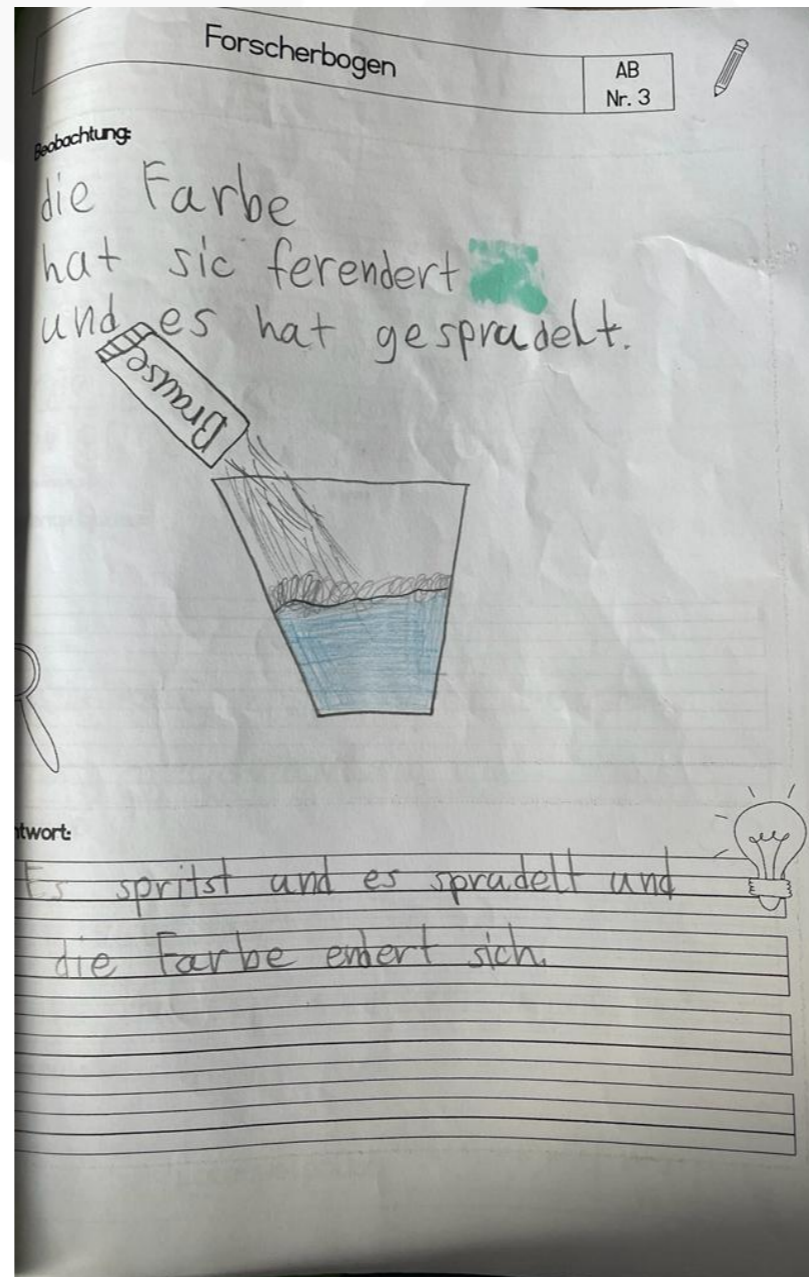 Forscherbogen
AB
Nr. 3
Beobachtung:
die Farbe
hat sic ferendert
und es hat gespradelt.
Brause
ntwort:
Es spritst und es spradelt und
die Farbe endert sich.